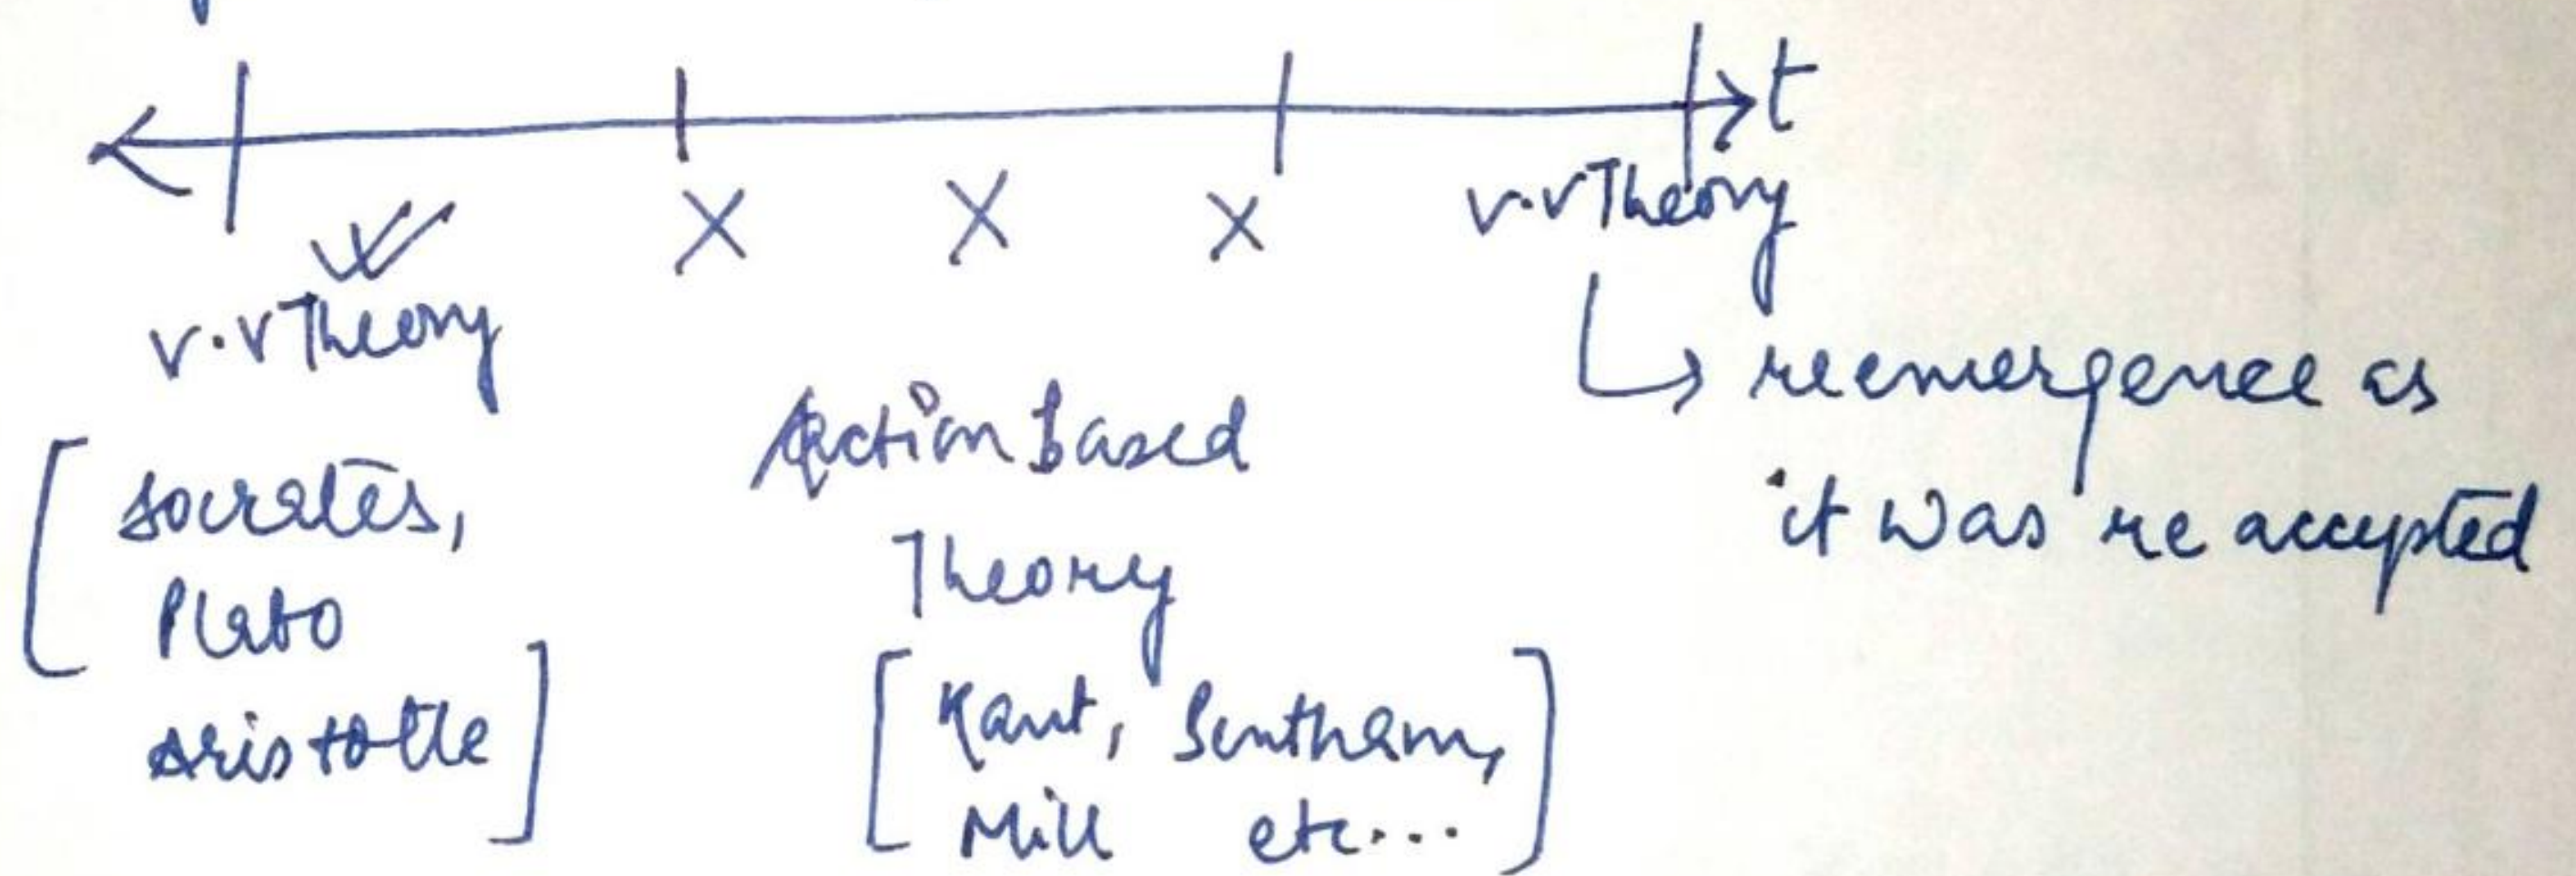 t
X X X
v.v Theory
v.v Theory
[ Socrates,
Plato
Aristotle ]
Action based
Theory
[ Kant, Bentham,
Mill etc... ]
↳ reemergence as
it was re accepted